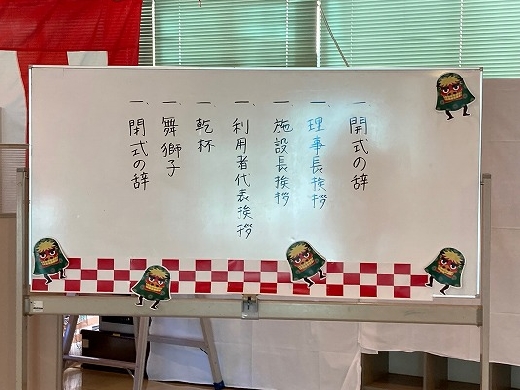 一、開式の辞
一、理事長挨拶
一、施設長挨拶
一、利用者代表挨拶
一、乾杯
一、舞獅子
一、閉式の辞